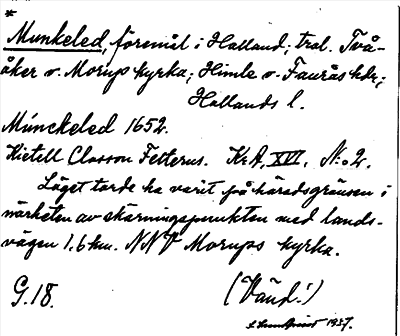 *
Munkeled, föremål i Halland; trol. Två-
åker o. Morups kyrka; Himle o. Faurås hdr;
Hallands l.
Múnckeled 1652.
Kietell Classon Felterus. K.A. XVI. N:o 2.
Läget torde ha varit på häradsgränsen i
närheten av skärningspunkten med lands-
vägen 1.6 km. NNV Morups kyrka.
G. 18.
(Vänd!)
1937.